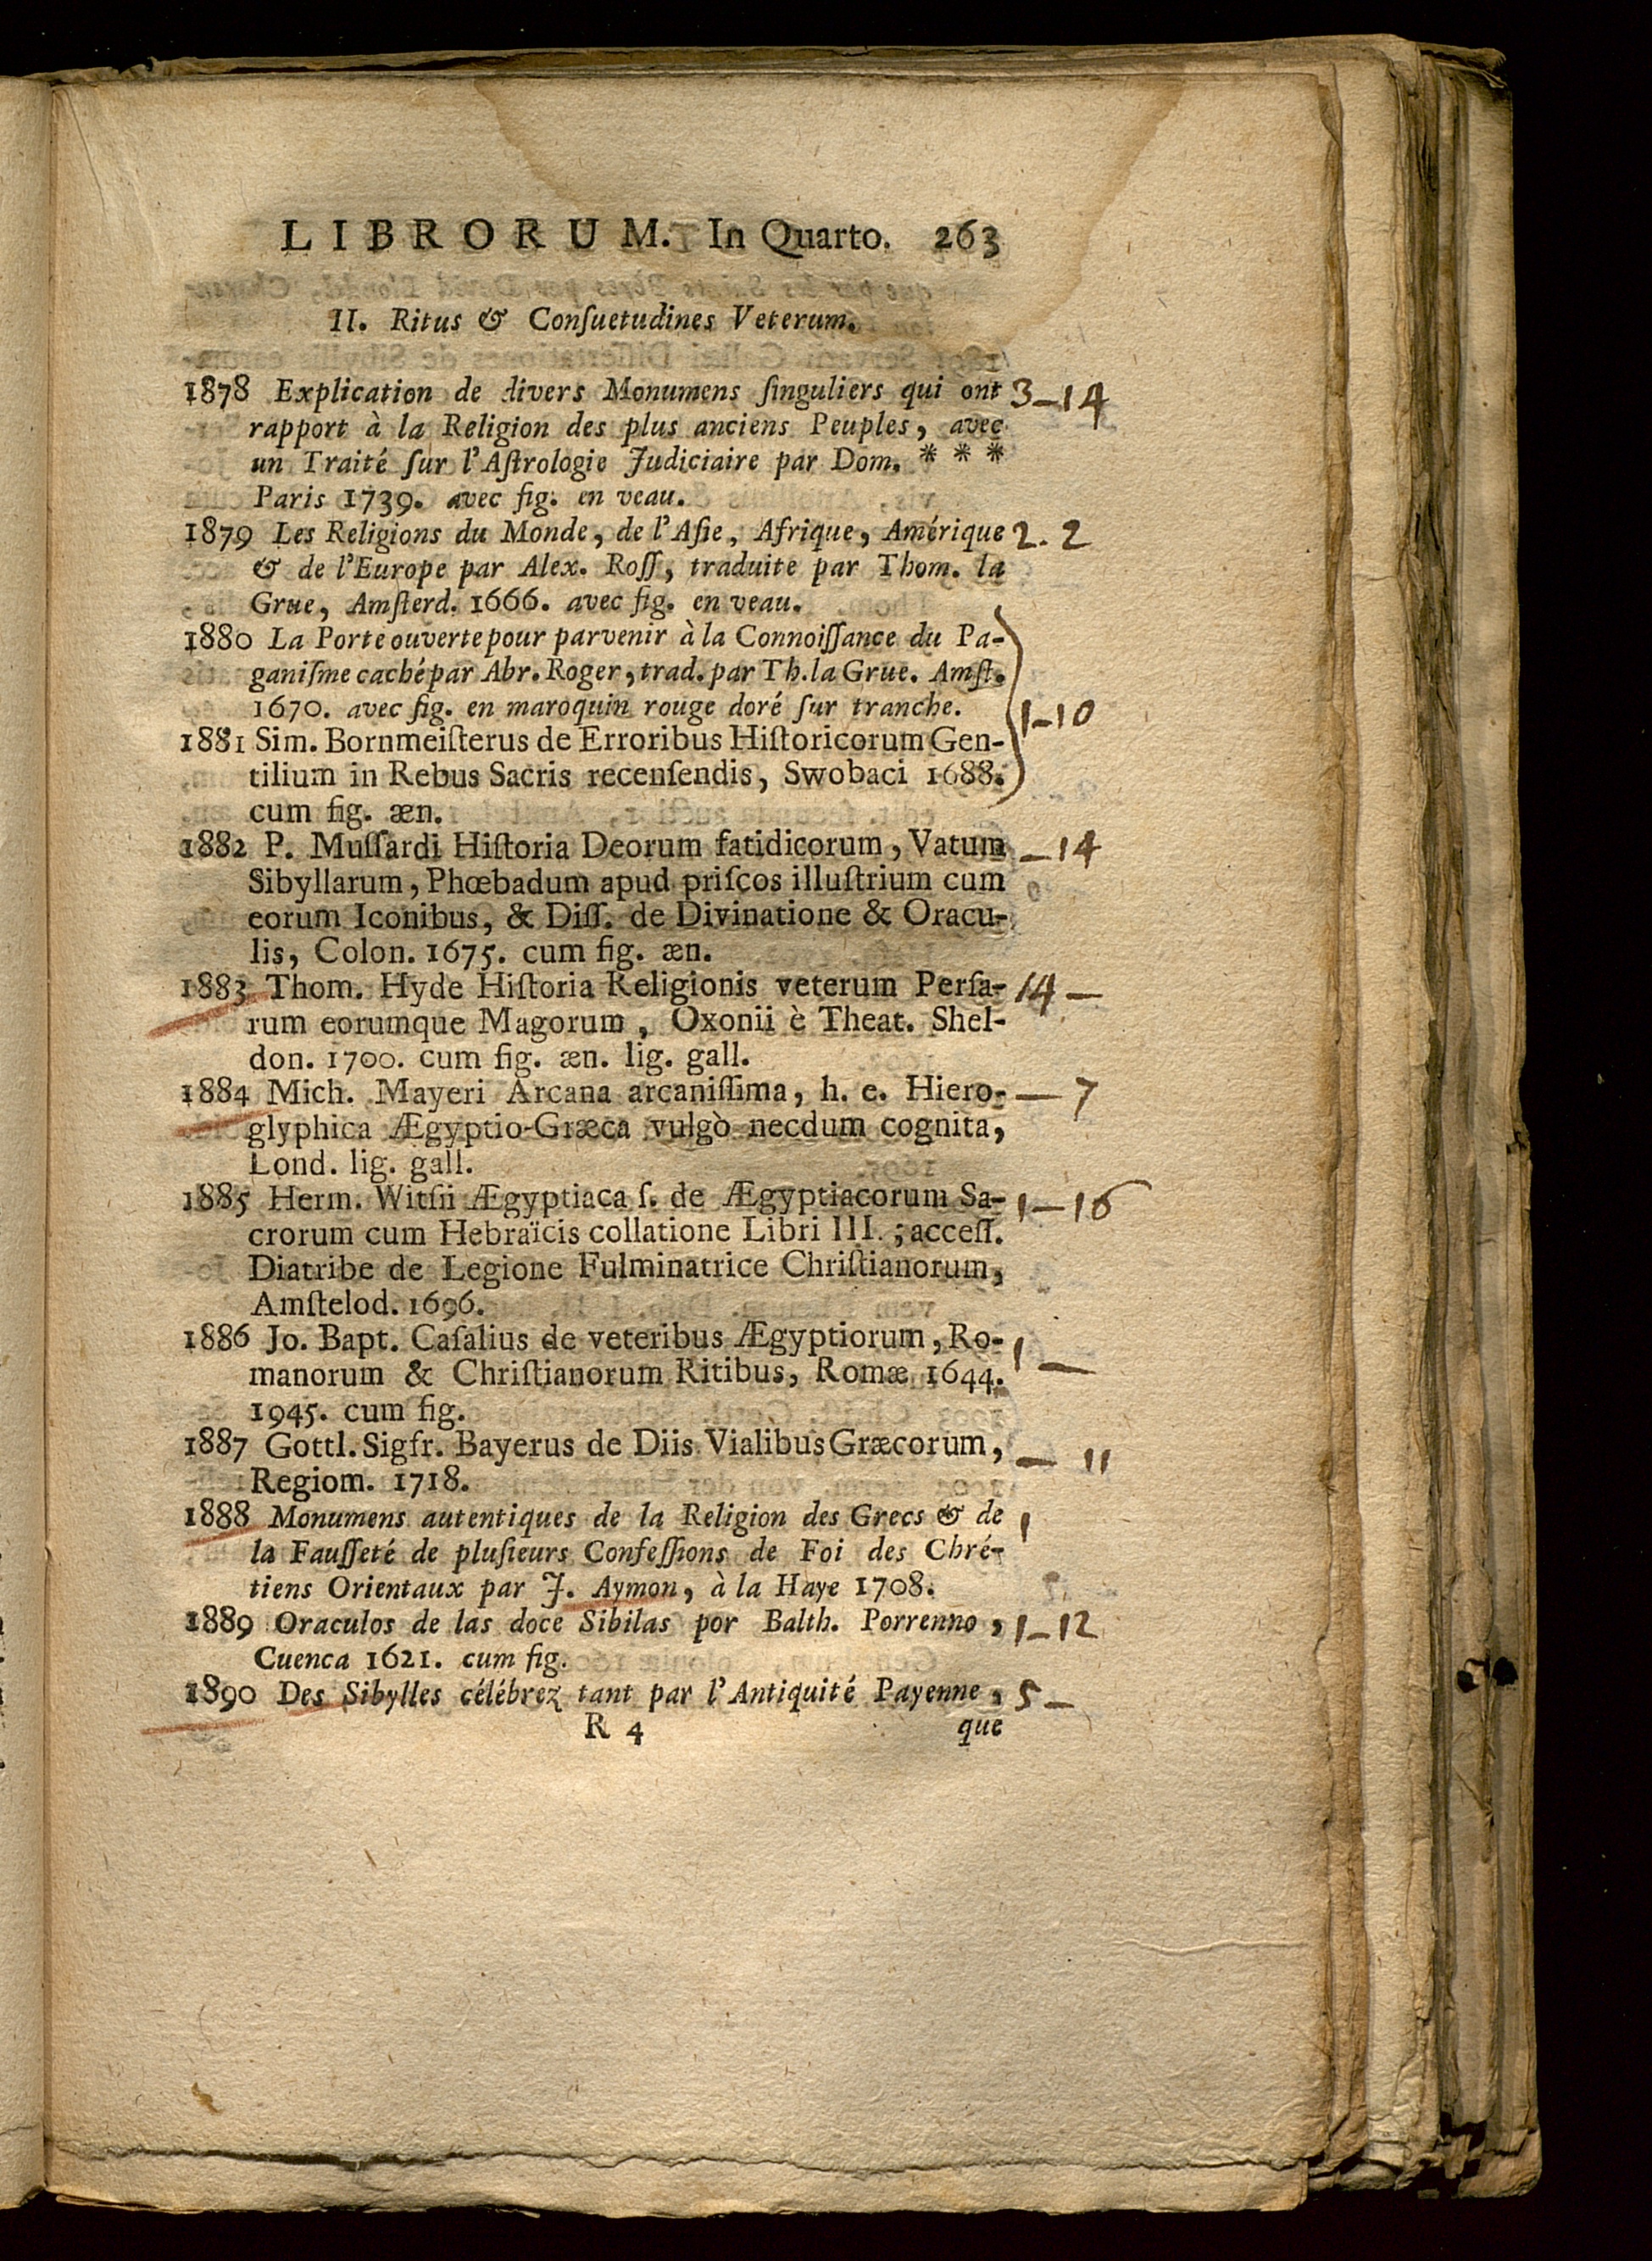 LIBRORUM. In Quarto. 263
II. Ritus & Conſuetudines Veterum.
1878 Explication de divers Monumens ſinguliers qui ont 3–14
rapport à la Religion des plus anciens Peuples, avec
un Traité ſur l'Aſtrologie Judiciaire par Dom. * * *
Paris 1739. avec fig. en veau.
1879 Les Religions du Monde, de l'Aſie, Afrique, Amérique 2. 2
& de l'Europe par Alex. Roſſ, traduite par Thom. la
Grue, Amſterd. 1666. avec fig. en veau.
1880 La Porte ouverte pour parvenir à la Connoiſſance du Pa-
ganiſme caché par Abr. Roger, trad. par Th. la Grue. Amſt.
1670. avec fig. en maroquin rouge doré ſur tranche. 1–10
1881 Sim. Bornmeiſterus de Erroribus Hiſtoricorum Gen-
tilium in Rebus Sacris recenſendis, Swobaci 1688.
cum fig. æn.
1882 P. Muſſardi Hiſtoria Deorum fatidicorum, Vatum –14
Sibyllarum, Phœbadum apud priſcos illuſtrium cum
eorum Iconibus, & Diſſ. de Divinatione & Oracu-
lis, Colon. 1675. cum fig. æn.
1883 Thom. Hyde Hiſtoria Religionis veterum Perſa- 14 –
rum eorumque Magorum, Oxonii è Theat. Shel-
don. 1700. cum fig. æn. lig. gall.
1884 Mich. Mayeri Arcana arcaniſſima, h. e. Hiero- — 7
glyphica Ægyptio-Græca vulgò necdum cognita,
Lond. lig. gall.
1885 Herm. Witſii Ægyptiaca ſ. de Ægyptiacorum Sa- 1–16
crorum cum Hebraïcis collatione Libri III.; acceſſ.
Diatribe de Legione Fulminatrice Chriſtianorum,
Amſtelod. 1696.
1886 Jo. Bapt. Caſalius de veteribus Ægyptiorum, Ro- 1 –
manorum & Chriſtianorum Ritibus, Romæ 1644.
1945. cum fig.
1887 Gottl. Sigfr. Bayerus de Diis Vialibus Græcorum, – 11
Regiom. 1718.
1888 Monumens autentiques de la Religion des Grecs & de 1
la Fauſſeté de pluſieurs Confeſſions de Foi des Chré-
tiens Orientaux par J. Aymon, à la Haye 1708.
1889 Oraculos de las doce Sibilas por Balth. Porrenno, 1–12
Cuenca 1621. cum fig.
1890 Des Sibylles célébrez tant par l'Antiquité Payenne, 5 –
R 4 que